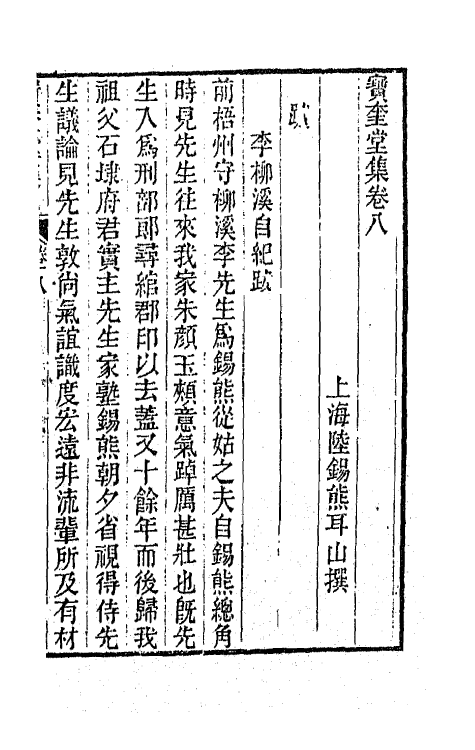 寶奎堂集卷八
上海陸錫熊耳山撰
跋
李柳溪自紀跋
前梧州守柳溪李先生爲錫熊從姑之夫自錫熊總角
時見先生往來我家朱顏玉頰意氣踔厲甚壯也旣先
生入爲刑部郞尋綰郡印以去蓋又十餘年而後歸我
祖父石埭府君實主先生家塾錫熊朝夕省視得侍先
生議論見先生敦尙氣誼識度宏遠非流輩所及有材
卷八